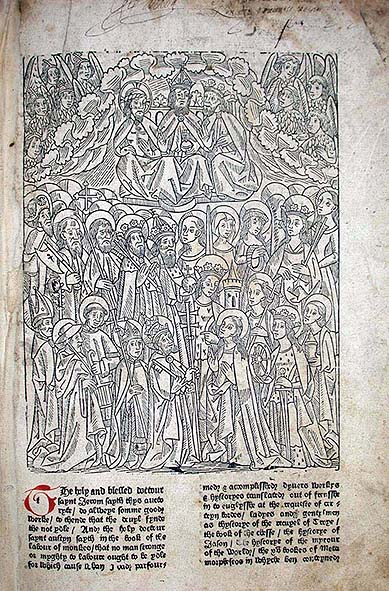 The holy and blessed doctour
saynt Jerom sayth thys aucto
ryte / do alweye somme good
werke / to thende that the deuyl fynde
the not ydle / And the holy doctour
saynt austyn sayth in the book of the
labour of monkes / that no man stronge
or myghty to labour ought to be ydle
for which cause whan I had parfour
med & accomplisshed dyuers werkys
& hystoryes translated out of frensshe
in to englysshe at the requeste of cer
teyn lordes / ladyes and gentylmen
as thystorye of the recuyel of Troye /
the book of the chesse / the hystorye of
Jason / The hystorye of the myrour
of the world / the xv bookes of Meta
morphoseos in whyche ben conteyned